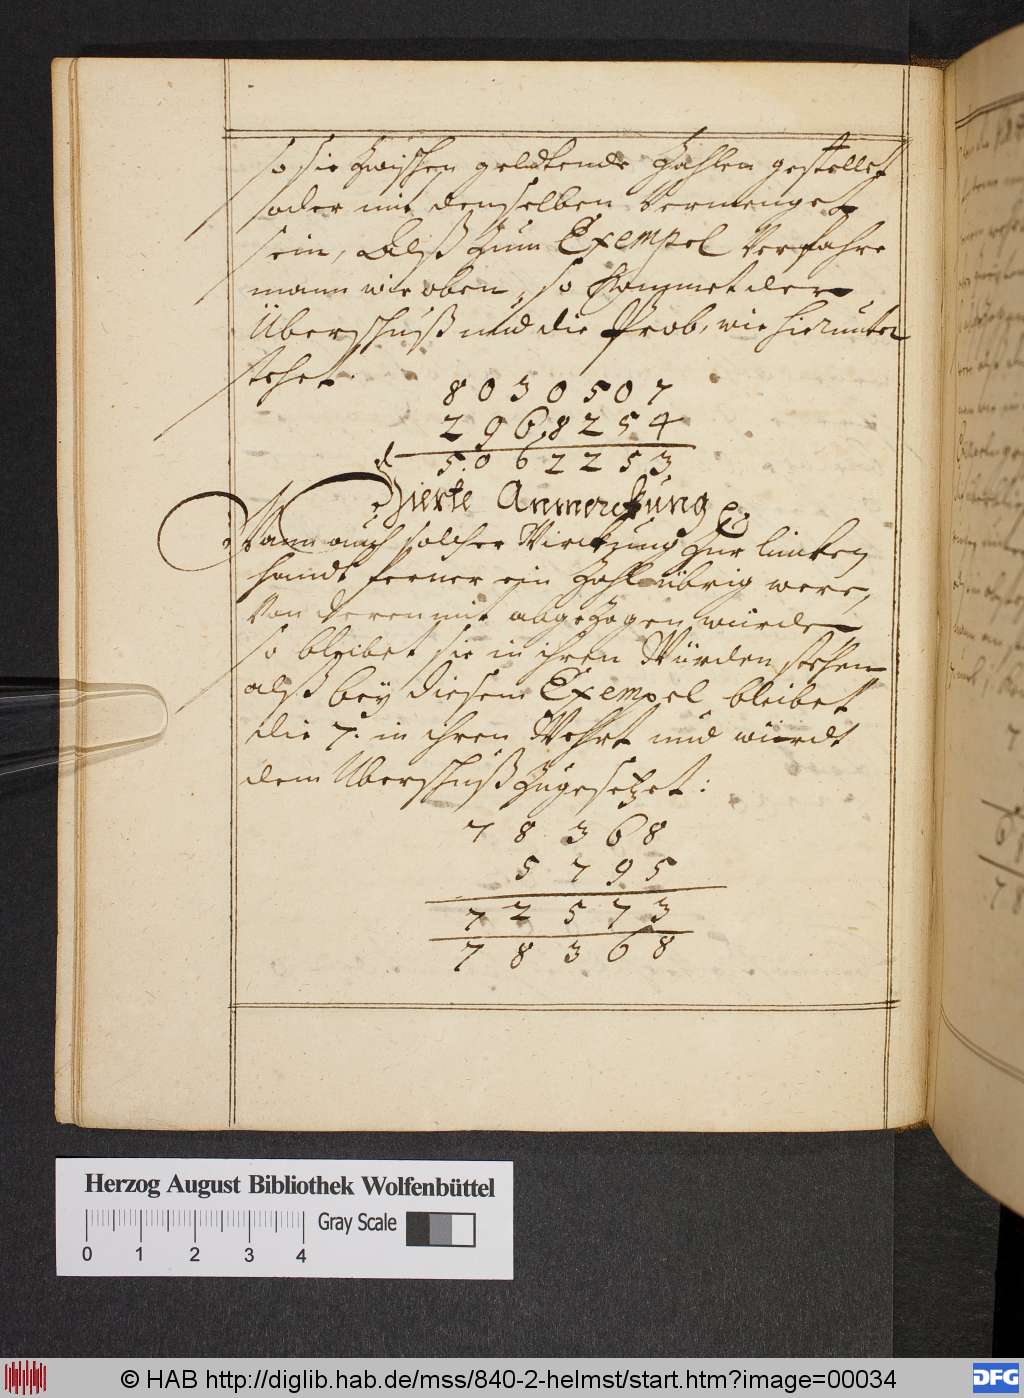 so sie zwischen geldtende Zahlen gestellet
oder mit denselben vermenget
sein, Alß zum Exempel verfahre
mann wie oben, so kommet der
Überschuß und die Prob, wie hierunter
stehet.
8 0 3 0 5 0 7
2 9 6 8 2 5 4
5 0 6 2 2 5 3
Vierte Anmerckung
Wann auch solcher Wirckung zur lincken
handt ferner ein Zahl übrig were,
von deren mit abgezogen würde
so bleibet sie in ihren Würden stehen
alß bey diesem Exempel bleibet
die 7. in ihren Wehrt und wirdt
dem Uberschuß zugesetzet:
7 8 3 6 8
5 7 9 5
7 2 5 7 3
7 8 3 6 8
Herzog August Bibliothek Wolfenbüttel
Gray Scale
0 1 2 3 4
© HAB http://diglib.hab.de/mss/840-2-helmst/start.htm?image=00034
DFG